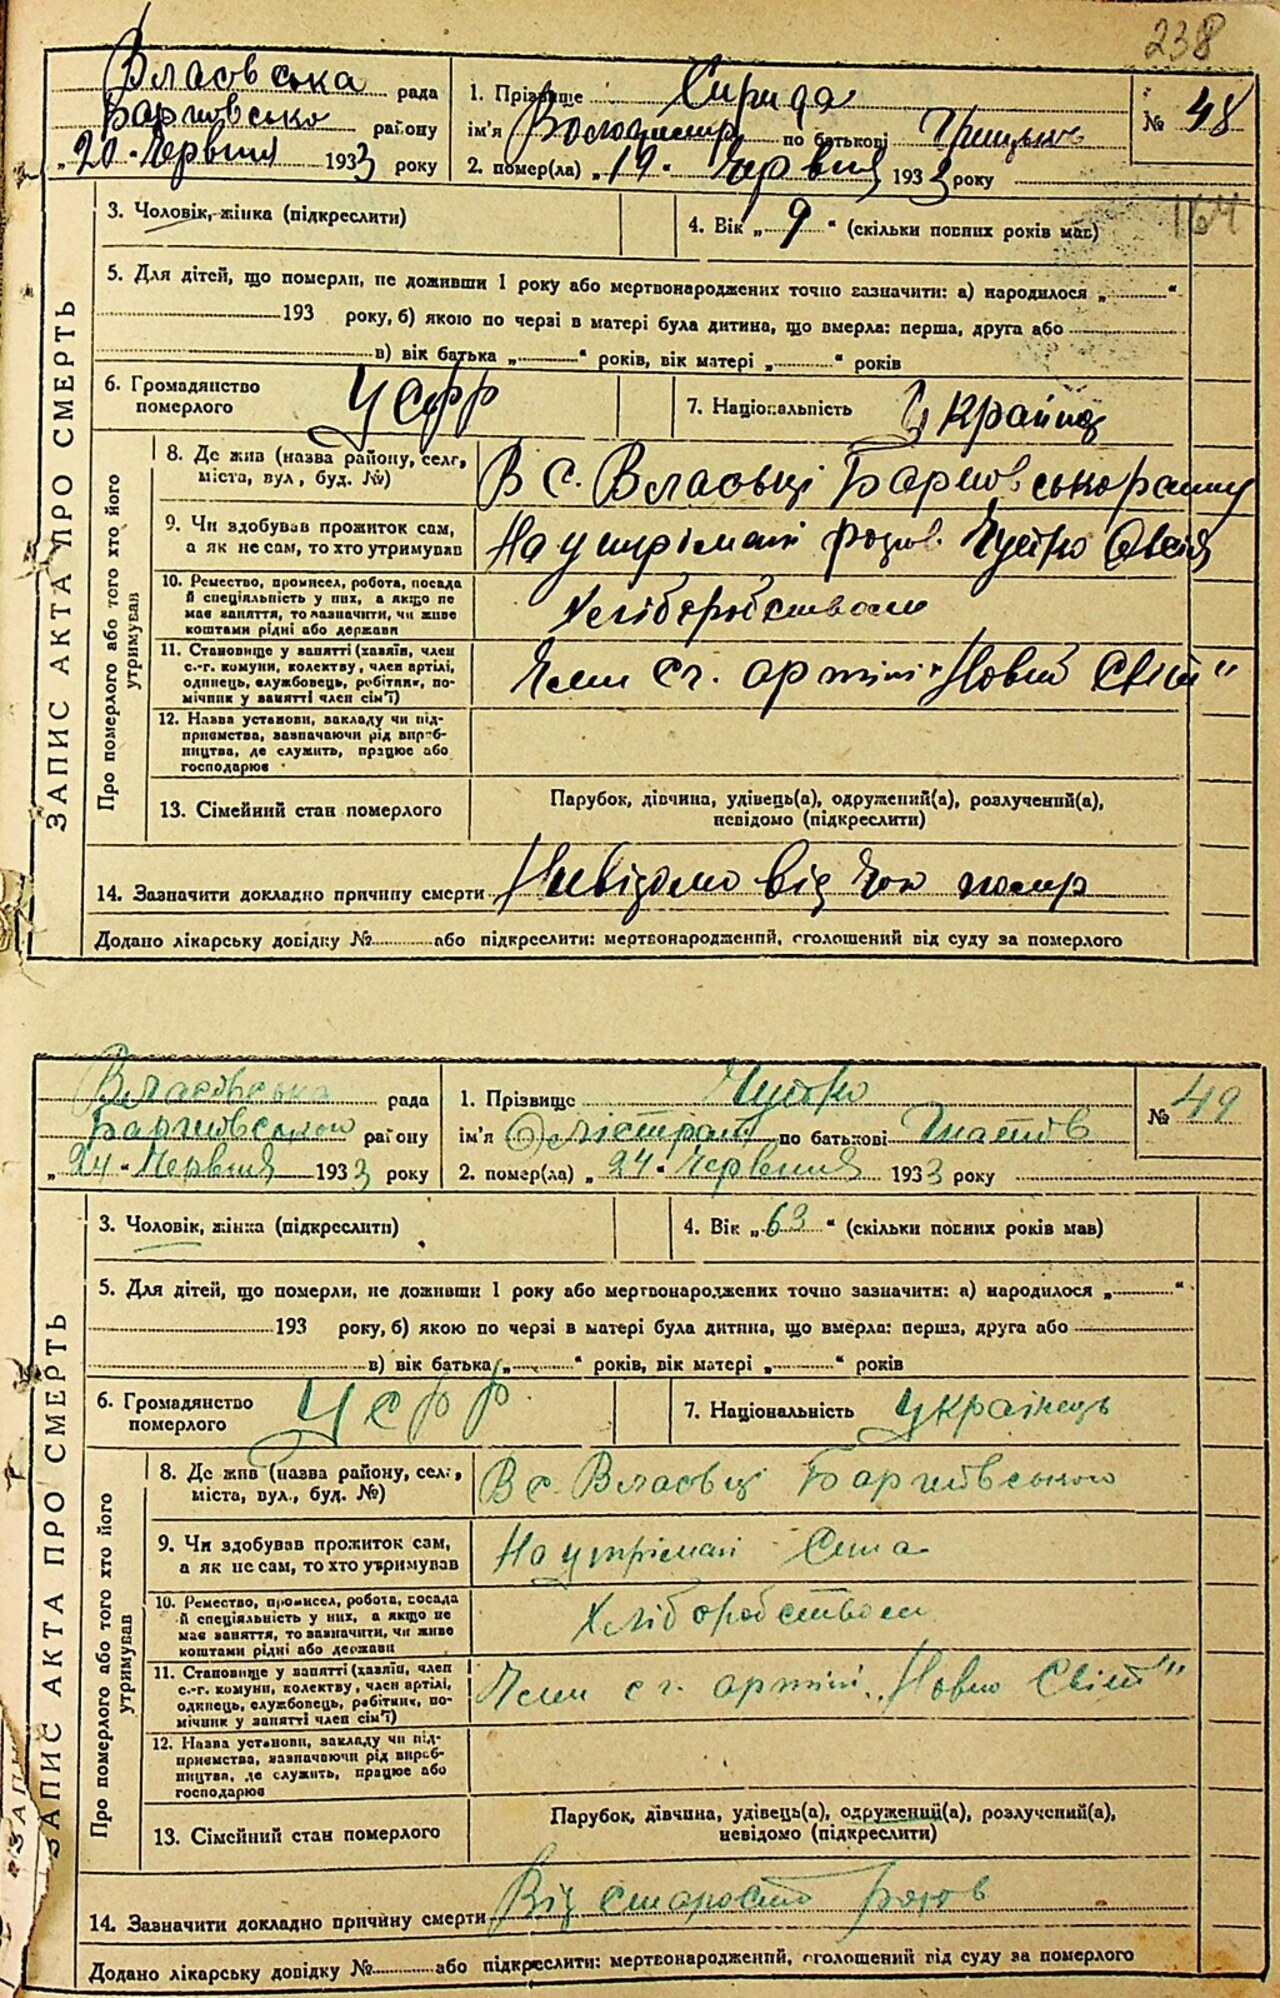 238
Власовська рада
району
"20" Червня 1933 року
1. Прізвище
ім'я Володимир по батькові Грицьков
2. помер(ла) "19" Червня 1933 року
№ 48
164
ЗАПИС АКТА ПРО СМЕРТЬ
3. Чоловік, жінка (підкреслити)
4. Вік „ 9 “ (скільки повних років мав)
5. Для дітей, що померли, не доживши 1 року або мертвонароджених точно зазначити: а) народилося „ “
193 року, б) якою по черзі в матері була дитина, що вмерла: перша, друга або
в) вік батька „ “ років, вік матері „ “ років
6. Громадянство
померлого
УСРР
7. Національність
Українець
Про померлого або того хто його
утримував
8. Де жив (назва району, села,
міста, вул., буд. №)
В с. Власовці
9. Чи здобував прожиток сам,
а як не сам, то хто утримував
На утрімані
10. Ремество, промисел, робота, посада
й спеціяльність у них, а якщо не
має заняття, то зазначити, чи живе
коштами рідні або держави
Хліборобством
11. Становище у занятті (хазяїн, член
с.-г. комуни, колективу, член артілі,
одинець, службовець, робітник, по-
мічник у занятті член сім'ї)
Член с г. артілі „Новий Світ"
12. Назва установи, закладу чи під-
приємства, зазначаючи рід вироб-
ництва, де служить, працює або
господарює
13. Сімейний стан померлого
Парубок, дівчина, удівець(а), одружений(а), розлучений(а),
невідомо (підкреслити)
14. Зазначити докладно причину смерти Невідомо від чого помер
Додано лікарську довідку № або підкреслити: мертвонароджений, оголошений від суду за померлого
Власовська рада
району
„24“ Червня 1933 року
1. Прізвище Чуйко
ім'я по батькові Гнатів
2. помер(ла) „24“ Червня 1933 року
№ 49
ЗАПИС АКТА ПРО СМЕРТЬ
3. Чоловік, жінка (підкреслити)
4. Вік „63“ (скільки повних років мав)
5. Для дітей, що померли, не доживши 1 року або мертвонароджених точно зазначити: а) народилося „ “
193 року, б) якою по черзі в матері була дитина, що вмерла: перша, друга або
в) вік батька „ “ років, вік матері „ “ років
6. Громадянство
померлого
УСРР
7. Національність
українець
Про померлого або того хто його
утримував
8. Де жив (назва району, села,
міста, вул., буд. №)
В с. Власовці
9. Чи здобував прожиток сам,
а як не сам, то хто утримував
На утрімані Сина
10. Ремество, промисел, робота, посада
й спеціяльність у них, а якщо не
має заняття, то зазначити, чи живе
коштами рідні або держави
Хліборобством
11. Становище у занятті (хазяїн, член
с.-г. комуни, колективу, член артілі,
одинець, службовець, робітник, по-
мічник у занятті член сім'ї)
Член с г. артілі „Новий Світ"
12. Назва установи, закладу чи під-
приємства, зазначаючи рід вироб-
ництва, де служить, працює або
господарює
13. Сімейний стан померлого
Парубок, дівчина, удівець(а), одружений(а), розлучений(а),
невідомо (підкреслити)
14. Зазначити докладно причину смерти Від старости років
Додано лікарську довідку № або підкреслити: мертвонароджений, оголошений від суду за померлого